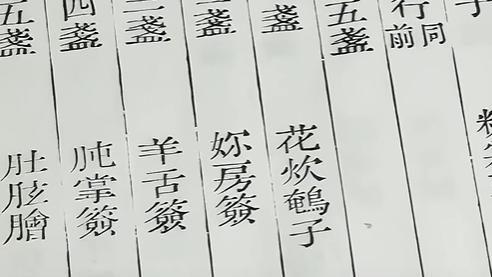 子
行同前
五盞
盞 花炊鵪子
盞 妳房簽
盞 羊舌簽
四盞 肫掌簽
五盞 肚胘膾